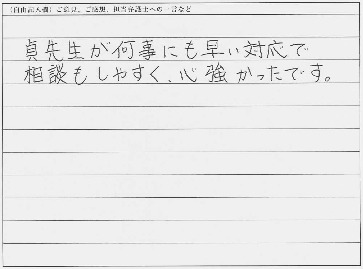 (自由記入欄)ご意見、ご感想、担当弁護士への一言など
貞先生が何事にも早い対応で
相談もしやすく、心強かったです。